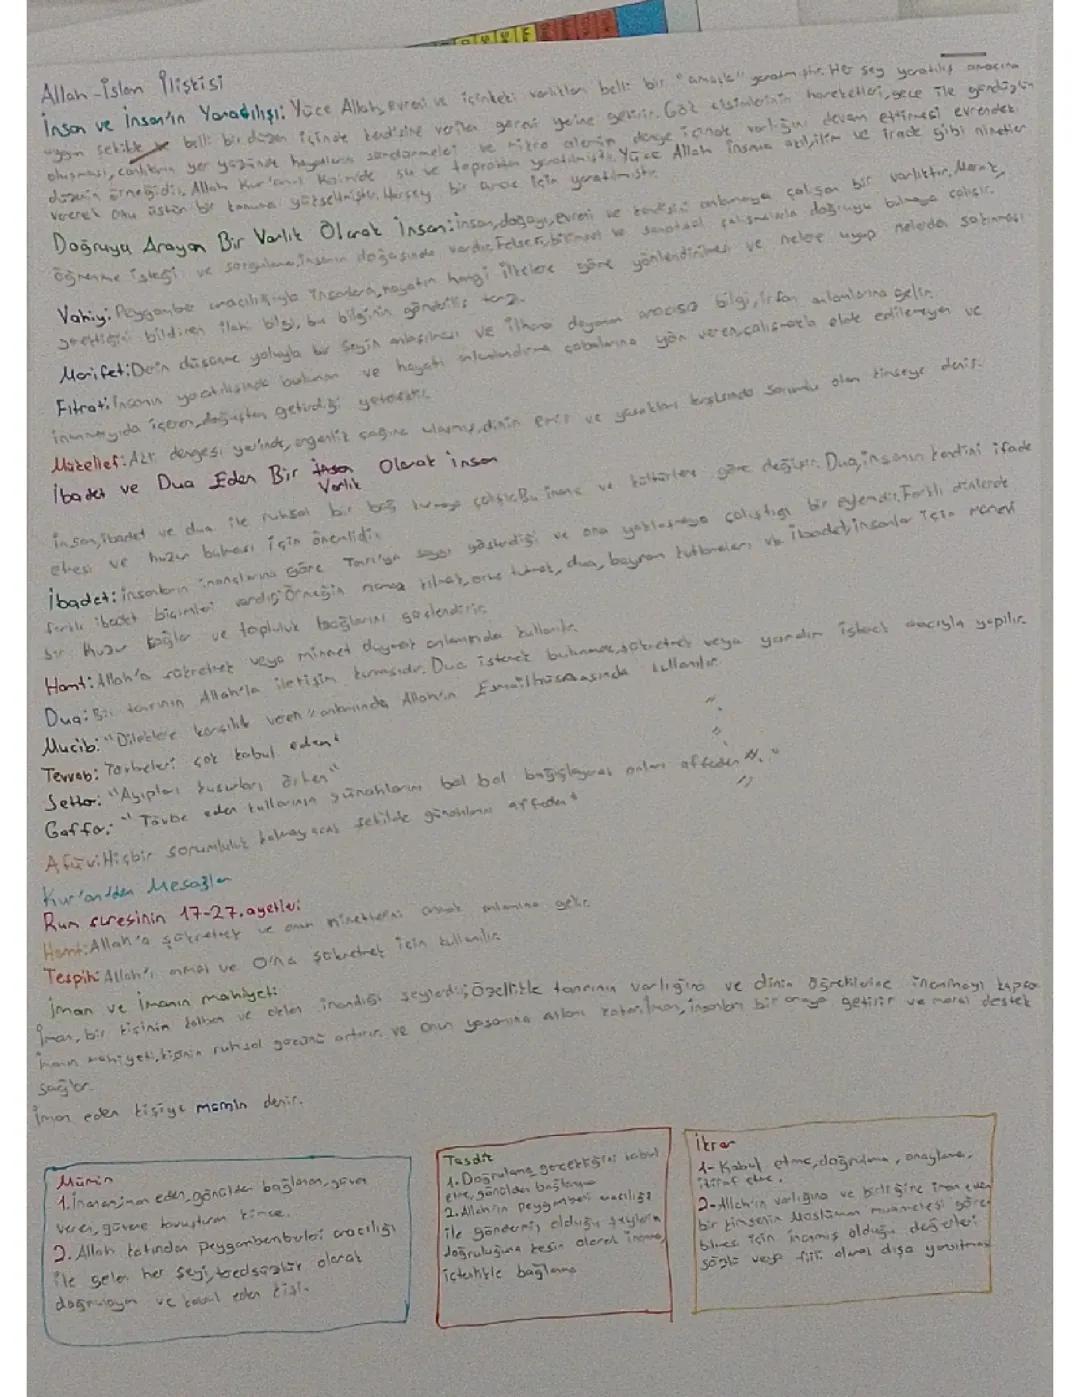 Allah-İslan İlişkisi
İnsan ve İnsan'ın Yaratılışı: Yüce Allah, evreni ve içindeki varlıkları belli bir "amaçla" yaratmıştır. Her şey yaratılış amacına
uygun şekilde belli bir düzen içinde kendisine verilen görevi yerine getirir. Gök cisimlerinin hareketleri, gece ile gündüzün
oluşması, canlıların yer yüzünde hayatlarını sürdürmeleri ve mikro alemin denge içinde varlığını devam ettirmesi evrendeki
düzenin örneğidir. Allah Kur'an-ı Kerim'de su ve topraktan yaratılmıştır. Yüce Allah insana akıl, ilim ve irade gibi nimetler
vererek onu üstün bir konuma yükselmiştir. Herşey bir amaç için yaratılmıştır.
Doğruyu Arayan Bir Varlık Olarak İnsan: İnsan, doğayı, evreni ve kendisini anlamaya çalışan bir varlıktır. Merak,
öğrenme isteği ve sorgulama, insanın doğasında vardır. Felsefi, bilimsel ve sanatsal çalışmalarla doğruyu bulmaya çalışır.
Vahiy: Peygamber aracılığıyla insanlara, hayatın hangi ilkelere göre yönlendirilmesi ve nelere uyup nelerden sakınması
gerektiğini bildiren ilahi bilgi, bu bilginin
Marifet: Derin düşünme yoluyla bir şeyin anlaşılması ve ilham doyanan aracısız bilgi, irfan anlamlarına gelir.
Fıtrat: İnsanın yaratılışında bulunan ve hayatı anlamlandırma çabalarına yön veren, çalışmakla elde edilemeyen ve
inanmayıda içeren, doğuştan getirdiği yetenektir.
Mükellef: Akli dengesi yerinde, ergenlik çağına ulaşmış, dinin emir ve yasakları karşısında sorumlu olan kimseye denir.
İbadet ve Dua Eden Bir Varlık Olarak insan
İnsan, ibadet ve dua ile ruhsal bir bağ kurmaya çalışır. Bu inanç ve kültürlere göre değişir. Dua, insanın kendini ifade
etmesi ve huzur bulması için önemlidir.
İbadet: insanların inançlarına göre Tanrı'ya saygı gösterdiği ve ona yaklaşmaya çalıştığı bir eylemdir. Farklı dinlerde
farklı ibadet biçimleri vardır; Örneğin namaz kılmak, oruç tutmak, dua, bayram kutlamaları vb. ibadet, insanlar için manevi
bir huzur sağlar ve topluluk bağlarını güçlendirir.
Hamt: Allah'a şükretmek veya minnet duymak anlamında kullanılır.
Dua: Bir tanrının Allah'la iletişim kurmasıdır. Dua istekte bulunmak, şükretmek veya yardım istemek amacıyla yapılır.
Mucib: "Dileklere karşılık veren" anlamında Allah'ın Esmaülhüsnasında kullanılır.
Tevvab: Tövbeleri çok kabul eden"
Settar: "Ayıpları kusurları örten"
Gaffar: "Tövbe eden kullarının günahlarını bol bol bağışlayarak onları affeden."
Afüv: Hiçbir sorumluluk kalmayacak şekilde günahları affeden"
Kur'an'dan Mesajlar
Rum suresinin 17-27. ayetleri
Hamt: Allah'a şükretmek ve onun nimetlerini anmak anlamına gelir.
Tespih: Allah'ı anmak ve O'na şükretmek için kullanılır.
İman ve İmanın mahiyeti
İman, bir kişinin kalben ve aklen inandığı şeylerdir; Özellikle tanrının varlığına ve dinin öğretilerine inanmayı kapsar.
İmanın mahiyeti, kişinin ruhsal gücünü artırır ve onun yaşamına anlam katar. İman, insanları bir araya getirir ve moral destek
sağlar.
İman eden kişiye mümin denir.
Mümin
1. İnanan, iman eden, gönülden bağlanan, güven
veren, güvene kavuşturan kimse.
2. Allah katından peygamberi aracılığı
ile gelen her şeyi, tereddütsüz olarak
doğrulayan ve kabul eden kişi.
Tasdik
1. Doğrulama, gerçekliğini kabul
etme, gönülden bağlanma
2. Allah'ın peygamberi aracılığı
ile göndermiş olduğu şeylerin
doğruluğuna kesin olarak inanma,
içtenlikle bağlanma
İkrar
1- Kabul etme, doğrulama, onaylama,
itiraf etme.
2- Allah'ın varlığına ve birliğine iman eden
bir kimsenin Müslüman muamelesi göre-
bilmesi için inanmış olduğu değerleri
sözlü veya fiili olarak dışa yansıtması